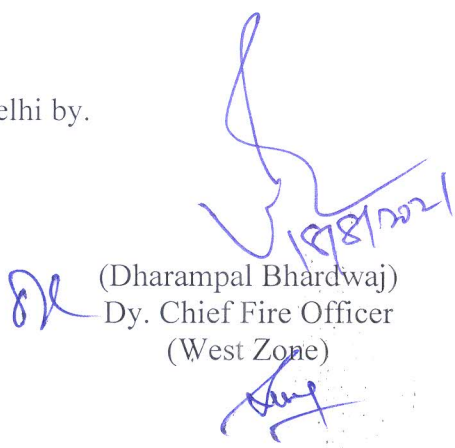 elhi by.
18/8/2021
(Dharampal Bhardwaj)
Dy. Chief Fire Officer
(West Zone)